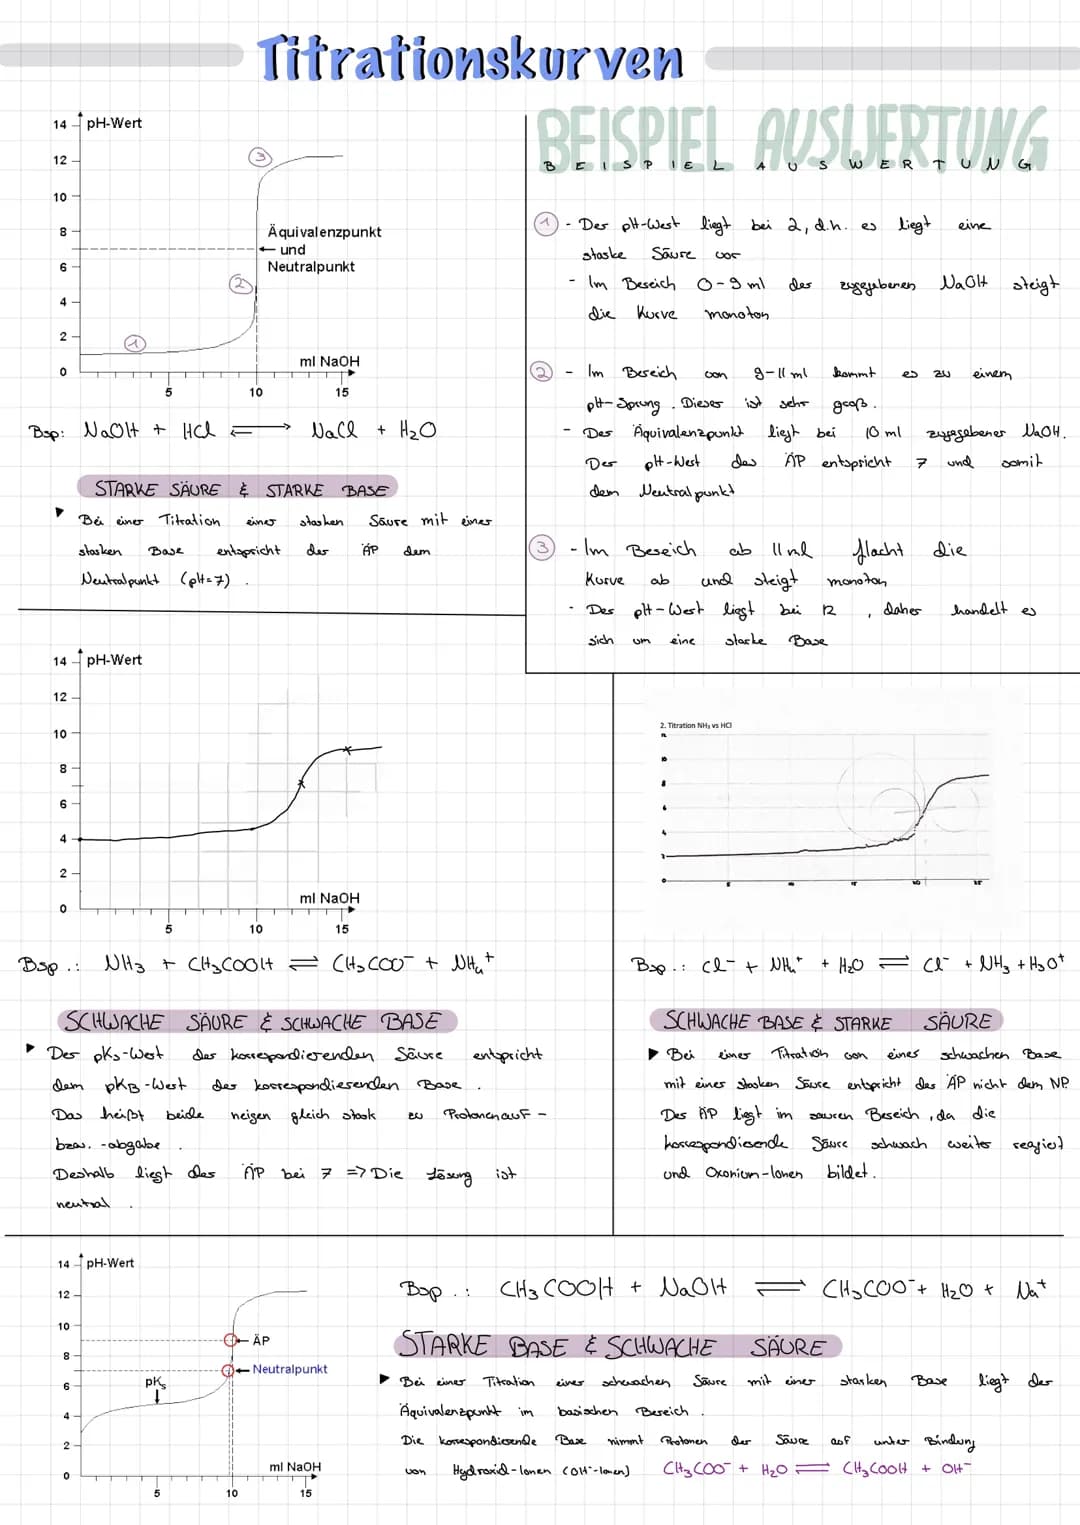 Titrationskurven
14 pH-Wert
12
10
8
6
4
2
0
5 10 15
ml NaOH
Äquivalenzpunkt
und
Neutralpunkt
1
2
3
Bsp: NaOH + HCl ⇌ NaCl + H₂O
STARKE SÄURE & STARKE BASE
▶ Bei einer Titration einer starken Säure mit einer
starken Base entspricht der ÄP dem
Neutralpunkt (pH=7).
BEISPIEL AUSWERTUNG
BEISPIEL AUSWERTUNG
1 - Der pH-Wert liegt bei 2, d.h. es liegt eine
starke Säure vor
- Im Bereich 0-9 ml der zugegebenen NaOH steigt
die Kurve monoton
2 - Im Bereich von 9-11 ml kommt es zu einem
pH-Sprung. Dieser ist sehr groß.
- Der Äquivalenzpunkt liegt bei 10 ml zugegebener NaOH.
Der pH-Wert des ÄP entspricht 7 und somit
dem Neutralpunkt
3 - Im Bereich ab 11 ml flacht die
Kurve ab und steigt monoton
- Der pH-Wert liegt bei 12, daher handelt es
sich um eine starke Base
14 pH-Wert
12
10
8
6
4
2
0
5 10 15
ml NaOH
Bsp.: NH₃ + CH₃COOH ⇌ CH₃COO⁻ + NH₄⁺
SCHWACHE SÄURE & SCHWACHE BASE
▶ Der pKs-Wert der korrespondierenden Säure entspricht
dem pKB-Wert der korrespondierenden Base.
Das heißt beide neigen gleich stark zu Protonenauf-
bzw. -abgabe.
Deshalb liegt der ÄP bei 7 => Die Lösung ist
neutral.
2. Titration NH₃ vs HCl
Bsp.: Cl⁻ + NH₄⁺ + H₂O ⇌ Cl⁻ + NH₃ + H₃O⁺
SCHWACHE BASE & STARKE SÄURE
▶ Bei einer Titration von einer schwachen Base
mit einer starken Säure entspricht der ÄP nicht dem NP.
Der ÄP liegt im sauren Bereich, da die
korrespondierende Säure schwach weiter reagiert
und Oxonium-Ionen bildet.
14 pH-Wert
12
10
8
6
4
2
0
5 10 15
ml NaOH
ÄP
Neutralpunkt
pKs
Bsp.: CH₃COOH + NaOH ⇌ CH₃COO⁻ + H₂O + Na⁺
STARKE BASE & SCHWACHE SÄURE
▶ Bei einer Titration einer schwachen Säure mit einer starken Base liegt der
Äquivalenzpunkt im basischen Bereich.
Die korrespondierende Base nimmt Protonen der Säure auf unter Bindung
von Hydroxid-Ionen (OH⁻-Ionen) CH₃COO⁻ + H₂O ⇌ CH₃COOH + OH⁻